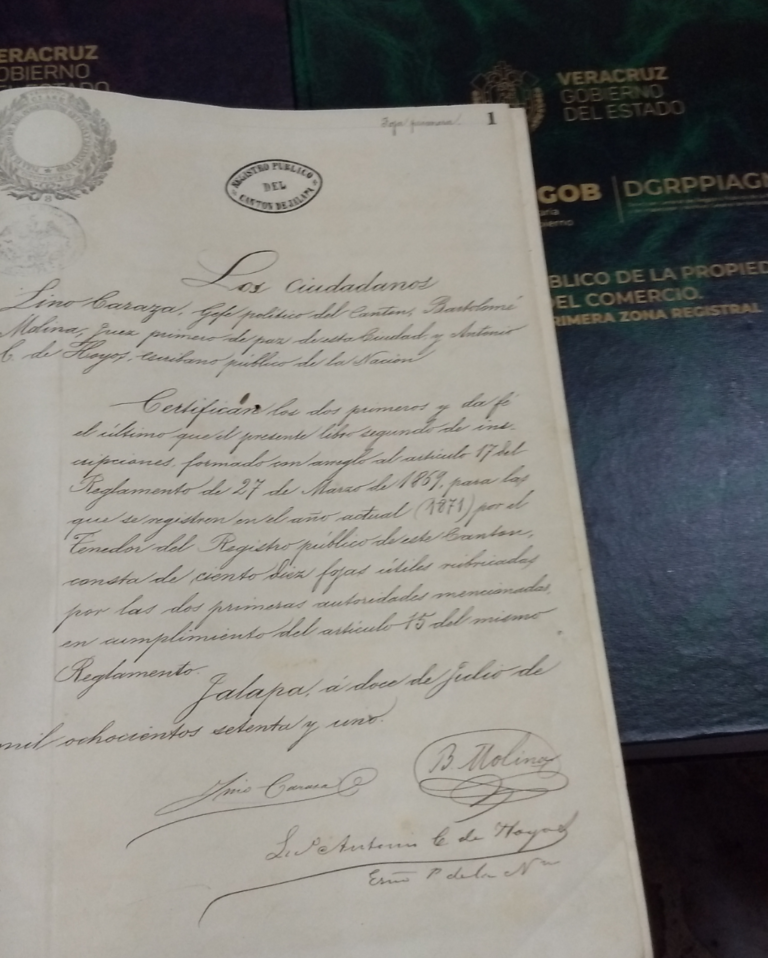 VERACRUZ
GOBIERNO
DEL ESTADO
ERACRUZ
OBIERNO
EL ESTADO
GOB
DGRPPIAGN
BLICO DE LA PROPIED
DEL COMERCIO.
RIMERA ZONA REGISTRAL
Foja primera. 1
REGISTRO PUBLICO
DEL
CANTON DE JALAPA
Los Ciudadanos
Lino Caraza, Gefe político del Canton, Bartolomé
Molina, Juez primero de paz de esta Ciudad, y Antonio
C. de Hoyos, escribano público de la Nación
Certifican los dos primeros y da fé
el último que el presente libro segundo de ins-
cripciones, formado con arreglo al artículo 17 del
Reglamento de 27 de Marzo de 1869, para las
que se registren en el año actual (1871) por el
Tenedor del Registro público de este Canton,
consta de ciento diez fojas útiles rubricadas
por las dos primeras autoridades mencionadas,
en cumplimiento del artículo 15 del mismo
Reglamento.
Jalapa, á doce de Julio de
mil ochocientos setenta y uno.
Lino Caraza
B Molina
Antonio C de Hoyos